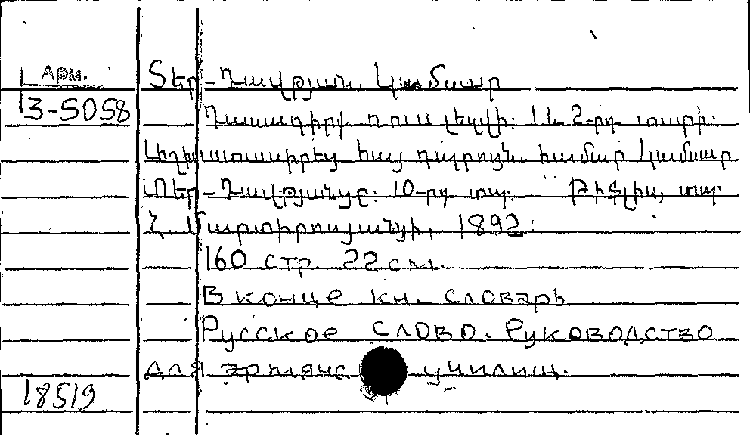 Арм.
3-5058
Տեր-Դավթյան, Կամսար
Դասագիրք ռուս լեզվի: II և 2-րդ տարի:
հայ դպրոցն. համար Կամսար
Տեր-Դավթյանցը: 10-րդ տպ. Թիֆլիս, տպ.
Մարտիրոսյանցի, 1892:
160 стр. 22 см.
В конце кн. словарь
Русское слово. Руководство
для армянс училищ.
18519